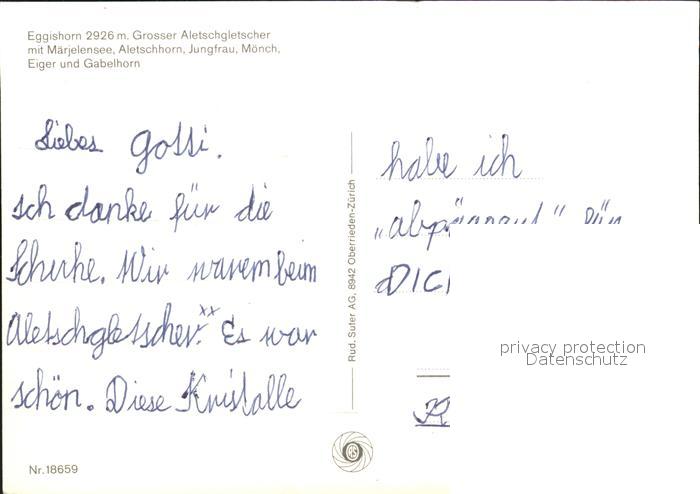 Eggishorn 2926 m. Grosser Aletschgletscher
mit Märjelensee, Aletschhorn, Jungfrau, Mönch,
Eiger und Gabelhorn
Liebes Gotti.
Ich danke für die
Schuhe. Wir waren beim
Aletschgletscher.xx Es war
schön. Diese Kristalle
Nr. 18659
Rud. Suter AG, 8942 Oberrieden-Zürich
habe ich
für
DICH
privacy protection
Datenschutz